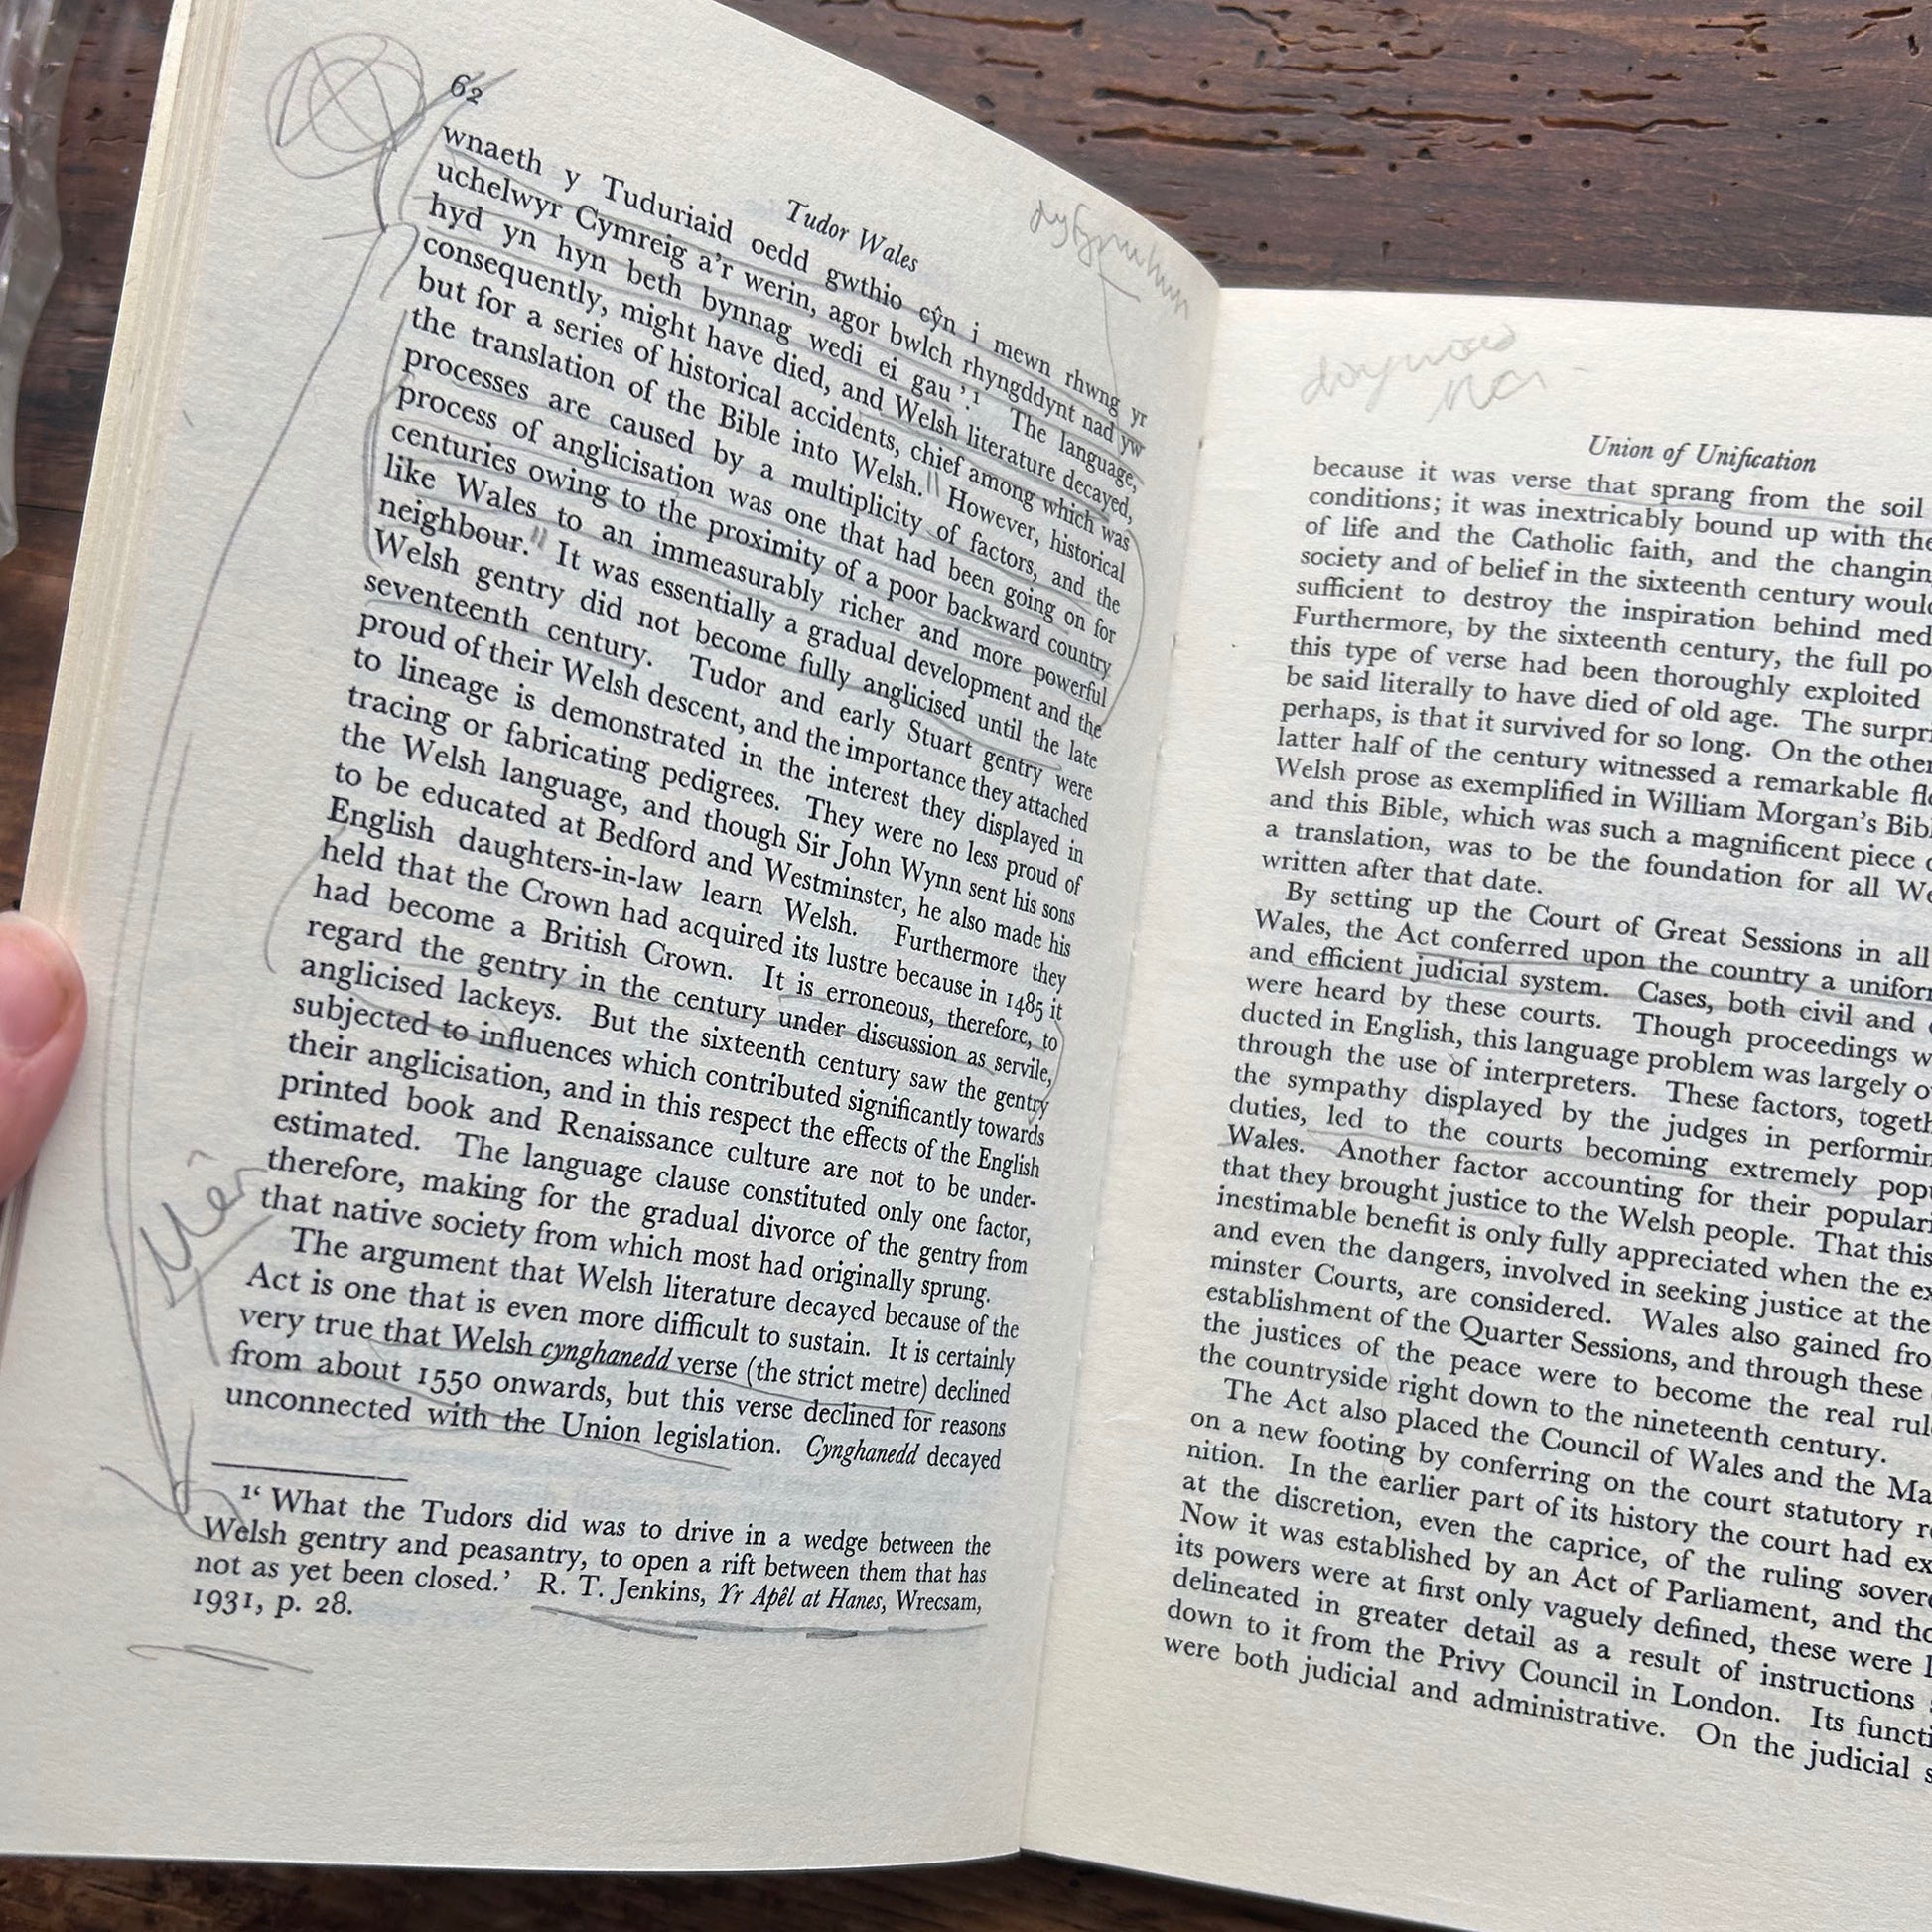 62
Tudor Wales
wnaeth y Tuduriaid oedd gwthio cŷn i mewn rhwng yr
uchelwyr Cymreig a'r werin, agor bwlch rhyngddynt nad yw
hyd yn hyn beth bynnag wedi ei gau'.1 The language,
consequently, might have died, and Welsh literature decayed,
but for a series of historical accidents, chief among which was
the translation of the Bible into Welsh. However, historical
processes are caused by a multiplicity of factors, and the
process of anglicisation was one that had been going on for
centuries owing to the proximity of a poor backward country
like Wales to an immeasurably richer and more powerful
neighbour. It was essentially a gradual development and the
Welsh gentry did not become fully anglicised until the late
seventeenth century. Tudor and early Stuart gentry were
proud of their Welsh descent, and the importance they attached
to lineage is demonstrated in the interest they displayed in
tracing or fabricating pedigrees. They were no less proud of
the Welsh language, and though Sir John Wynn sent his sons
to be educated at Bedford and Westminster, he also made his
English daughters-in-law learn Welsh. Furthermore they
held that the Crown had acquired its lustre because in 1485 it
had become a British Crown. It is erroneous, therefore, to
regard the gentry in the century under discussion as servile,
anglicised lackeys. But the sixteenth century saw the gentry
subjected to influences which contributed significantly towards
their anglicisation, and in this respect the effects of the English
printed book and Renaissance culture are not to be under-
estimated. The language clause constituted only one factor,
therefore, making for the gradual divorce of the gentry from
that native society from which most had originally sprung.
The argument that Welsh literature decayed because of the
Act is one that is even more difficult to sustain. It is certainly
very true that Welsh cynghanedd verse (the strict metre) declined
from about 1550 onwards, but this verse declined for reasons
unconnected with the Union legislation. Cynghanedd decayed
1‘ What the Tudors did was to drive in a wedge between the
Welsh gentry and peasantry, to open a rift between them that has
not as yet been closed.’ R. T. Jenkins, Yr Apêl at Hanes, Wrecsam,
1931, p. 28.
Union of Unification
because it was verse that sprang from the soil
conditions; it was inextricably bound up with the
of life and the Catholic faith, and the changin
society and of belief in the sixteenth century would
sufficient to destroy the inspiration behind med
Furthermore, by the sixteenth century, the full po
this type of verse had been thoroughly exploited
be said literally to have died of old age. The surpri
perhaps, is that it survived for so long. On the other
latter half of the century witnessed a remarkable flo
Welsh prose as exemplified in William Morgan's Bib
and this Bible, which was such a magnificent piece o
a translation, was to be the foundation for all We
written after that date.
By setting up the Court of Great Sessions in all
Wales, the Act conferred upon the country a uniform
and efficient judicial system. Cases, both civil and
were heard by these courts. Though proceedings w
ducted in English, this language problem was largely ov
through the use of interpreters. These factors, togeth
the sympathy displayed by the judges in performin
duties, led to the courts becoming extremely popu
Wales. Another factor accounting for their populari
that they brought justice to the Welsh people. That this
inestimable benefit is only fully appreciated when the ex
and even the dangers, involved in seeking justice at the
minster Courts, are considered. Wales also gained fro
establishment of the Quarter Sessions, and through these
the justices of the peace were to become the real rul
the countryside right down to the nineteenth century.
The Act also placed the Council of Wales and the Ma
on a new footing by conferring on the court statutory re
nition. In the earlier part of its history the court had ex
at the discretion, even the caprice, of the ruling sovere
Now it was established by an Act of Parliament, and tho
its powers were at first only vaguely defined, these were l
delineated in greater detail as a result of instructions
down to it from the Privy Council in London. Its functi
were both judicial and administrative. On the judicial s